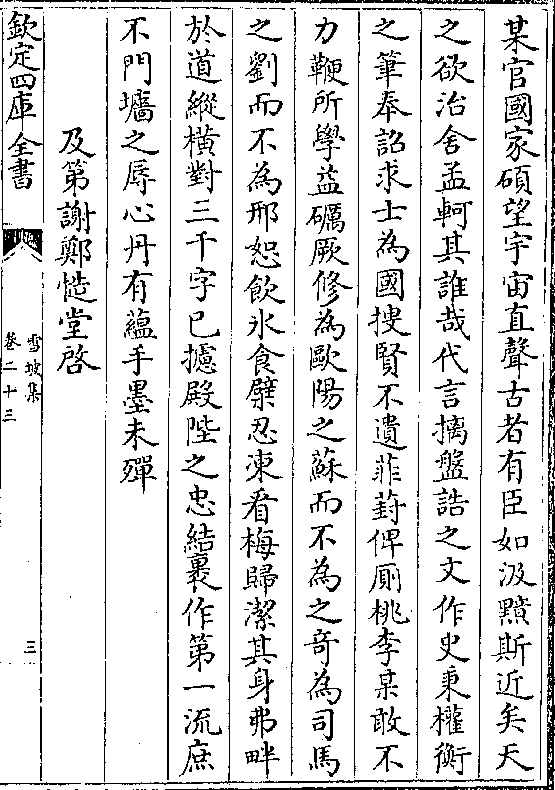 某官國家碩望宇宙直聲古者有臣如汲黯斯近矣天
之欲治舍孟軻其誰哉代言摛盤誥之文作史秉權衡
之筆奉詔求士為國搜賢不遺菲葑俾厠桃李某敢不
力鞭所學益礪厥修為歐陽之蘇而不為之奇為司馬
之劉而不為邢恕飲氷食檗忍凍看梅歸潔其身弗畔
於道縱橫對三千字已攄殿陛之忠結裹作第一流庶
不門墻之辱心丹有蘊手墨未殫
及第謝鄭慥堂啓
欽定四庫全書
雪坡集
卷二十三
三